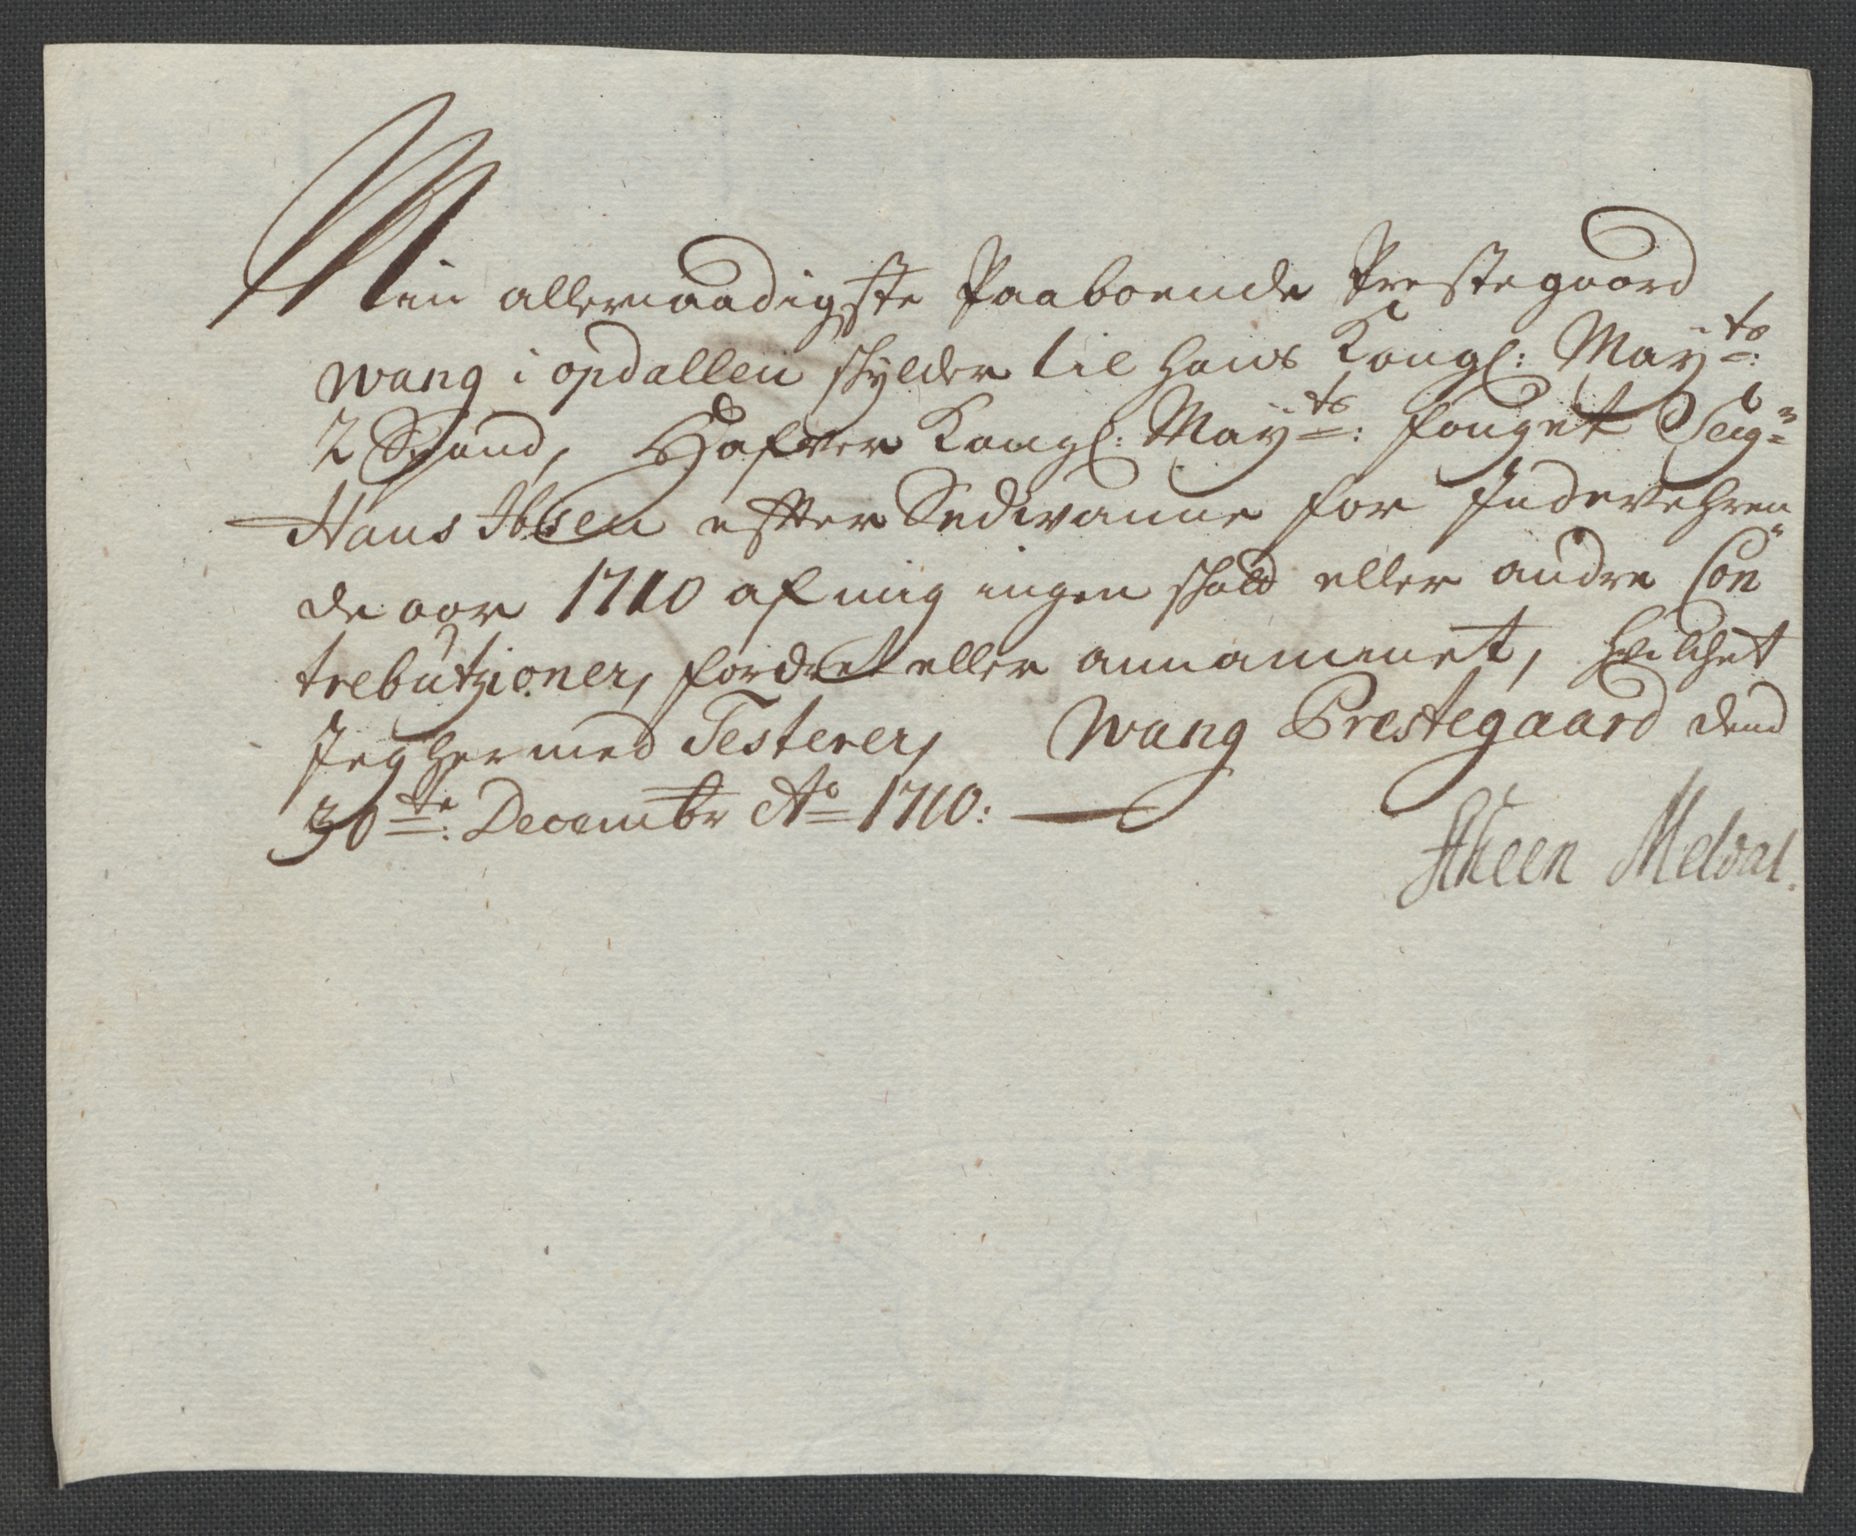 Min allernaadigste Paaboende Prestegaard
Wang i opdallen skylder til hans Kongl: May:ts:
2 Spand, Hafver Kongl: May:ts: fouget Seigr
Hans Ibsen effter Sedwanne for Indeværen
de aar 1710 af mig ingen skatt eller andre Con
trebutzioner, fordret eller annammet, hvilchet
Jeg hermed Testerer, Wang Præstegaard dend
30te: Decembr Ao 1710:
Meldal.